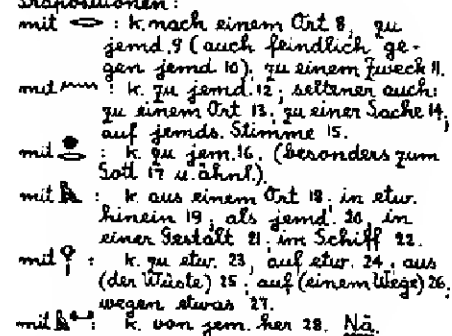 Präpositionen:
mit 𓂋 : k. nach einem Ort 8, zu
jemd. 9 (auch feindlich ge-
gen jemd. 10), zu einem Zweck 11.
mit 𓈖 : k. zu jemd. 12; seltener auch:
zu einem Ort 13, zu einer Sache 14,
auf jemds. Stimme 15.
mit 𓐍𓂋 : k. zu jem. 16. (besonders zum
Gott 17 u. ähnl.).
mit 𓅓 : k. aus einem Ort 18. in etw.
hinein 19; als jemd. 20, in
einer Gestalt 21; im Schiff 22.
mit 𓁷 : k. zu etw. 23, auf etw. 24; aus
(der Wüste) 25; auf (einem Wege) 26,
wegen etwas 27.
mit : k. von jem. her 28. Nä.